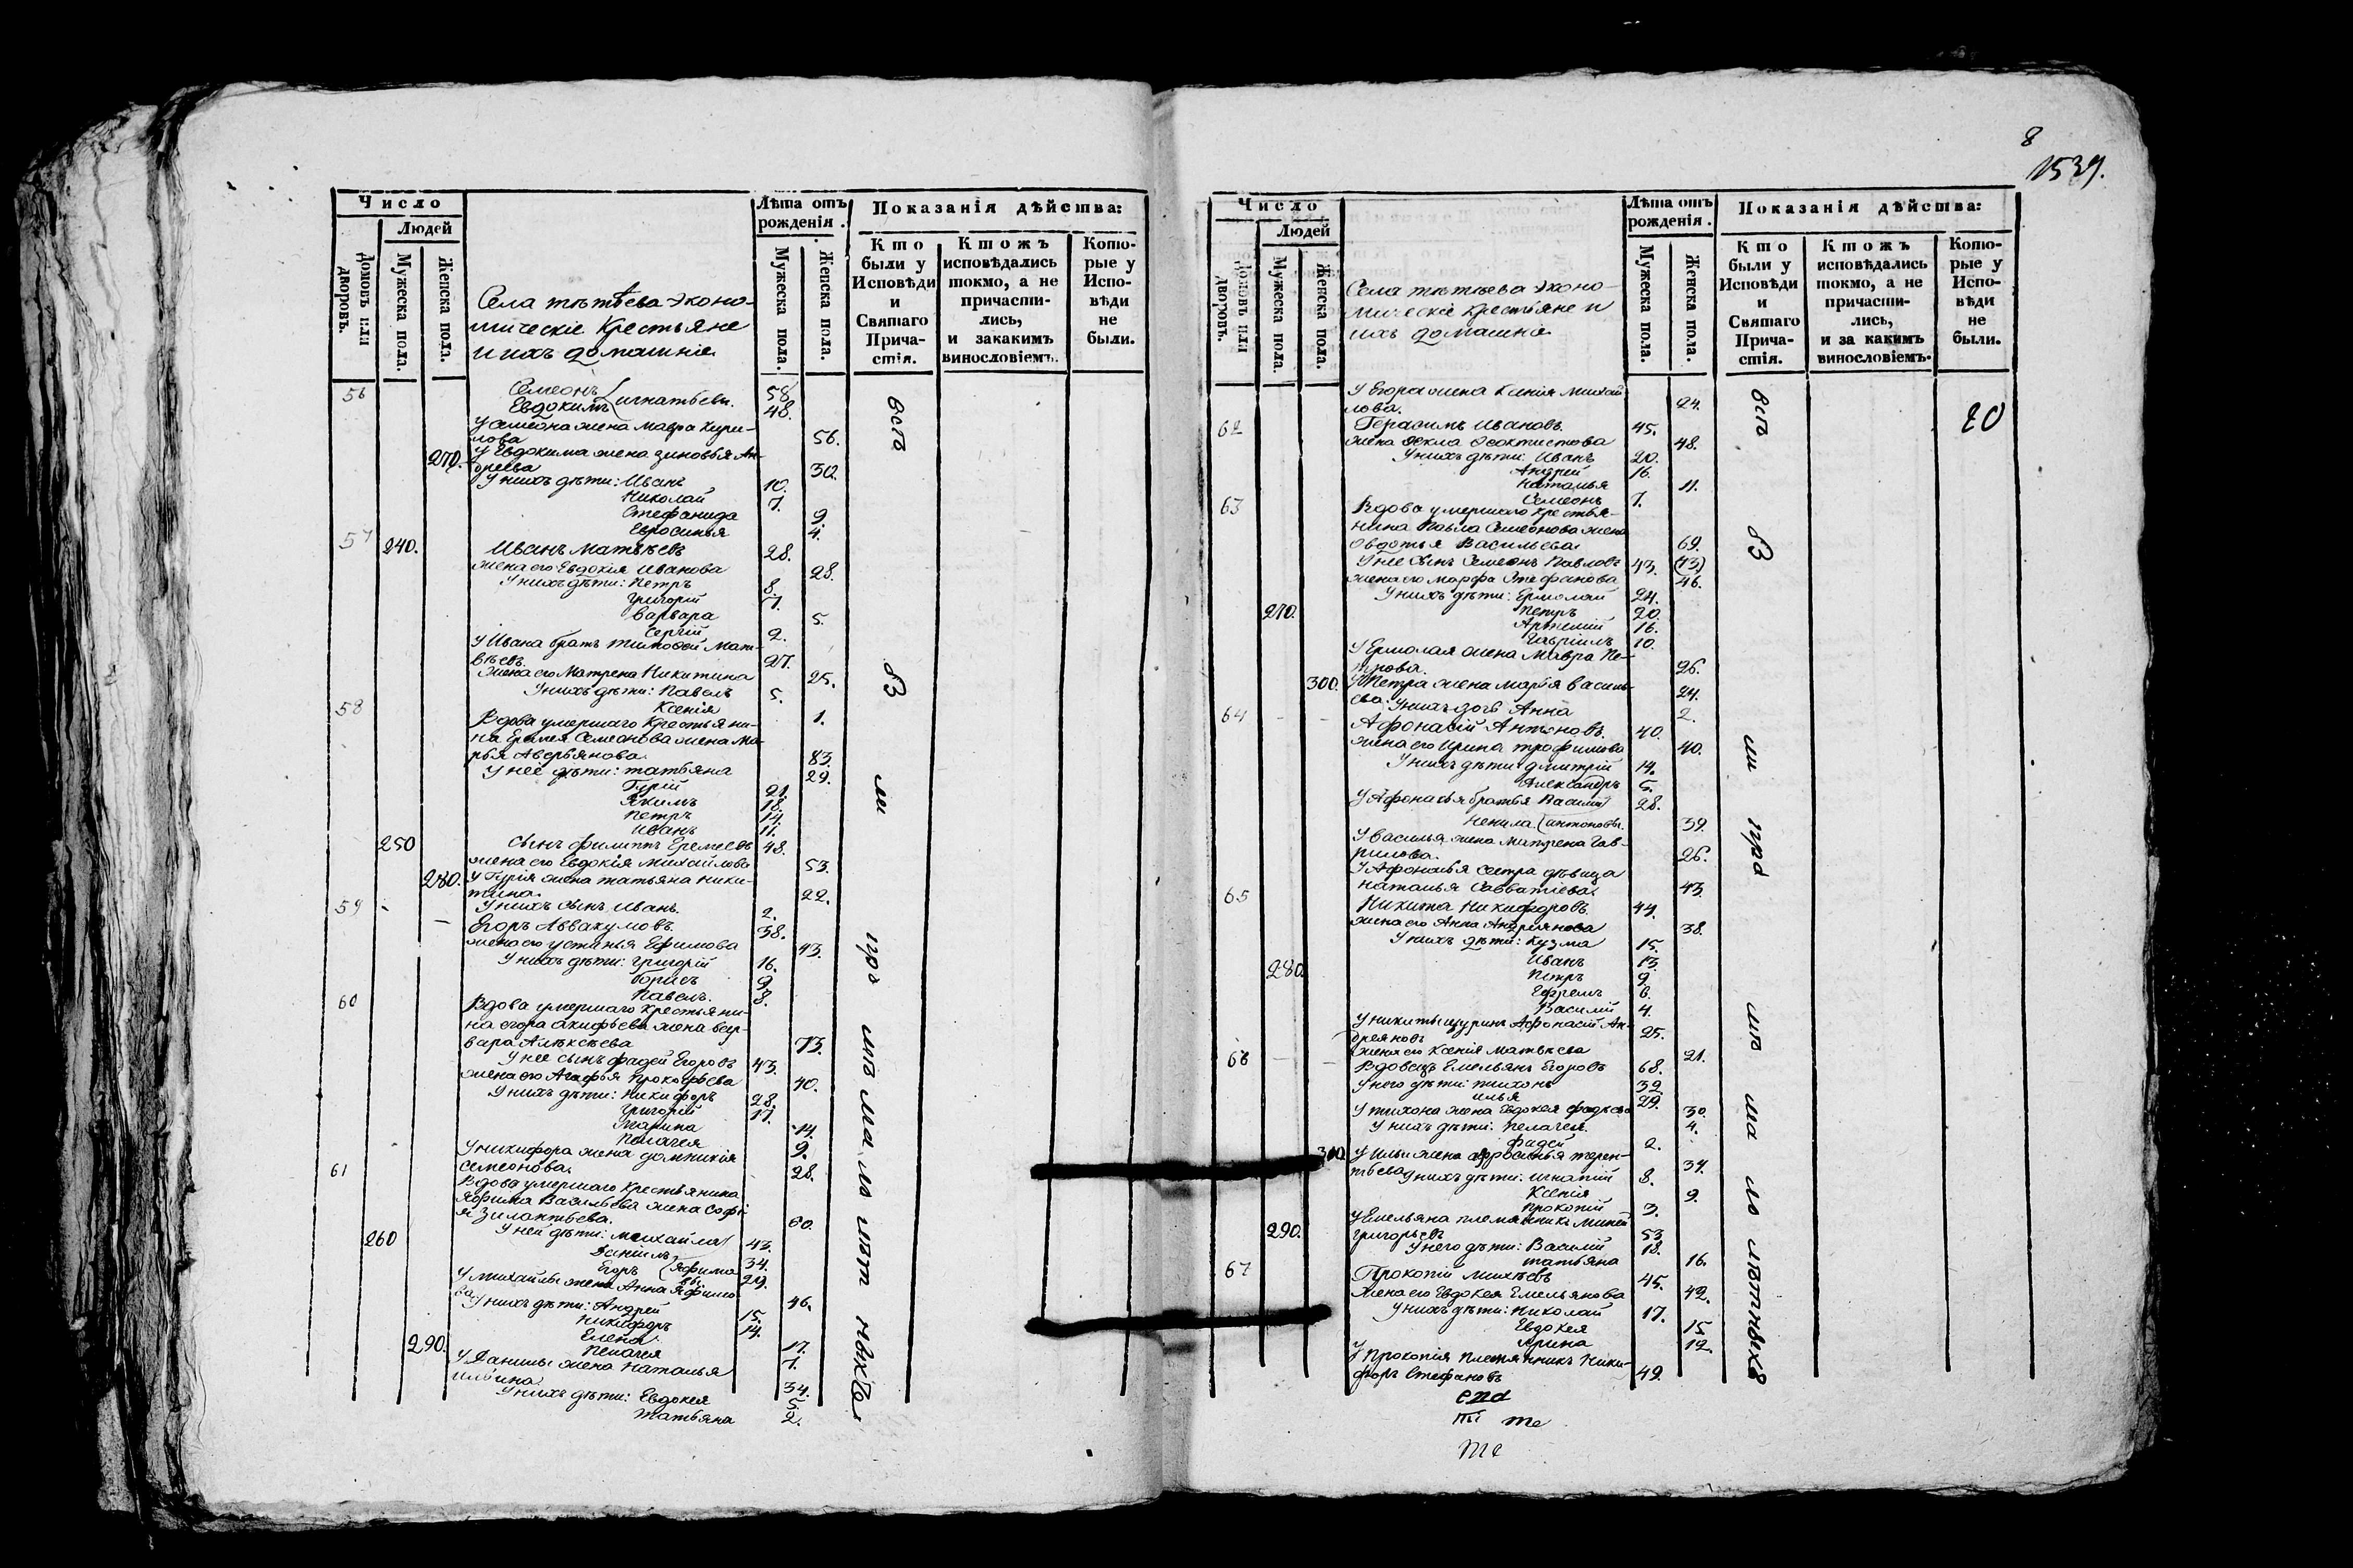 Число
Людей
Домовъ или дворовъ.
Мужеска пола.
Женска пола.
Лѣта отъ рожденія.
Мужеска пола.
Женска пола.
Показанія дѣйства:
Кто были у Исповѣди и Святаго Прича-стія.
Ктожъ исповѣдались токмо, а не причасти-лись, и закакимъ винословіемъ.
Кото-рые у Испо-вѣди не были.
Села тѣтѣева эконо-
мическіе крестьяне
и ихъ домашніе
56 Семеонъ 58.
Евдокимъ игнатьевы. 48.
У Семеона жена мавра кири-
лова 56.
У Евдокима жена зиновья Ан-
270. дреева 30.
У нихъ дѣти: Иванъ 10.
Николай 7.
Стефанида 9.
Евросинья 4.
57 240. Иванъ Матвѣевъ 28.
жена его Евдокия Иванова 28.
У нихъ дѣти: Петръ 8.
Григорій 7.
Варвара 5.
Сергій 2.
У Ивана братъ тимофей Мат-
вѣевъ. 27.
Жена его Матрена Никитина 25.
У нихъ дѣти: Павелъ 5.
Ксенія 1.
58 Вдова умершаго Крестьяни-
на Еремея Семеонова жена ма-
рья Аверьянова 83.
У нее дѣти: татьяна 29.
Гурій 21.
Якимъ 18.
Петръ 14.
Иванъ 11.
250 сынъ филиппъ Еремеевъ 48.
жена его Евдокія Михайлова 53.
280. У Гурія жена татьяна ники-
тина. 22.
У нихъ сынъ Иванъ. 2.
59 Егоръ Аввакумовъ. 38.
жена его устинья Ефимова 43.
У нихъ дѣти: Григорій 16.
Борисъ 9
Павелъ. 8.
60 Вдова умершаго крестьяни-
на егора акифьева жена вар-
вара Алѣксѣева 73.
У нее сынъ фадей Егоровъ 43.
жена его Агафья Прокофьева 40.
У нихъ дѣти: Никифоръ 28.
Григорій 17.
Марина 14.
Пелагея 9.
У никифора жена домникія
семеонова. 28.
61 Вдова умершаго крестьянина
Яфима Васильева жена софі-
я Зилантьева. 60
260 У ней дѣти: михайла 43.
Даніилъ 34.
Егоръ Яфимовы. 29.
У михайлы жена Анна Яфимо-
ва 46.
У нихъ дѣти: Андрей 15.
Никифоръ 14.
Елена 17.
290. Пелагея 7.
У Данилы жена Наталья
ильина 34.
У нихъ дѣти: Евдокея 5.
Татьяна 2.
8
1539.
Число
Людей
Домовъ или дворовъ.
Мужеска пола.
Женска пола.
Лѣта отъ рожденія.
Мужеска пола.
Женска пола.
Показанія дѣйства:
Кто были у Исповѣди и Святаго Прича-стія.
Ктожъ исповѣдались токмо, а не причасти-лись, и за какимъ винословіемъ.
Кото-рые у Испо-вѣди не были.
Села тѣтѣева эконо-
мическіе крестьяне и
ихъ домашніе
У Егора жена Ксенія Михай
лова. 24.
20
62 Герасимъ Ивановъ. 45.
жена Фекла Феоктистова 48.
У нихъ дѣти: Иванъ 20.
Андрей 16.
Наталья 11.
Семеонъ 7.
63 Вдова умершаго крестья-
нина Павла Семеонова жена
овдотья Васильева 69.
У нее сынъ Семеонъ Павловъ 43. (73)
жена его марфа Стефанова 46.
У нихъ дѣти: Ермолай 24.
270. Петръ 20.
Артемій 16.
Гавріилъ 10.
У Ермолая жена Мавра Пе-
трова. 26.
300. У Петра жена марія василь-
ева 24.
У нихъ дочь Анна 2.
64 Афонасій Антоновъ. 40.
жена его Ирина трофимова 40.
У нихъ дѣти димитрій 14.
Александръ 5.
У Афонасья братья Василій 28.
Ненила антоновы. 39.
У василья жена матрена Гав-
рилова. 26.
У Афонасья сестра дѣвица
наталья Савватіева. 43.
65 Никита Никифоровъ. 44.
жена его Анна Андреянова 38.
У нихъ дѣти: Кузма 15.
Иванъ 13
280. Петръ 9
Ефремъ 6.
Василій 4.
У никиты шуринъ Афонасій Ан-
дреяновъ 25.
жена его Ксенія Матвѣева 21.
66 Вдовецъ Емельянъ Егоровъ 68.
У него дѣти: тихонъ 32.
илья 29.
У тихона жена Евдокея фадѣева 30.
У нихъ дѣти: Пелагея. 4.
Фадей 2.
310. У Ильи жена афросинья терен-
тьева 34.
У нихъ дѣти: игнатій 8.
Ксенія 9.
Прокопій 3.
У Емельяна племянникъ Миней
290. Григорьевъ 53
У него дѣти: Василій 18.
татьяна 16.
67 Прокопій Михѣевъ 45.
жена его Евдокея Емельянова 42.
У нихъ дѣти: Николай 17.
Евдокея 15
Арина 12.
У Прокопія Племянникъ Ники-
форъ Стефановъ 49.